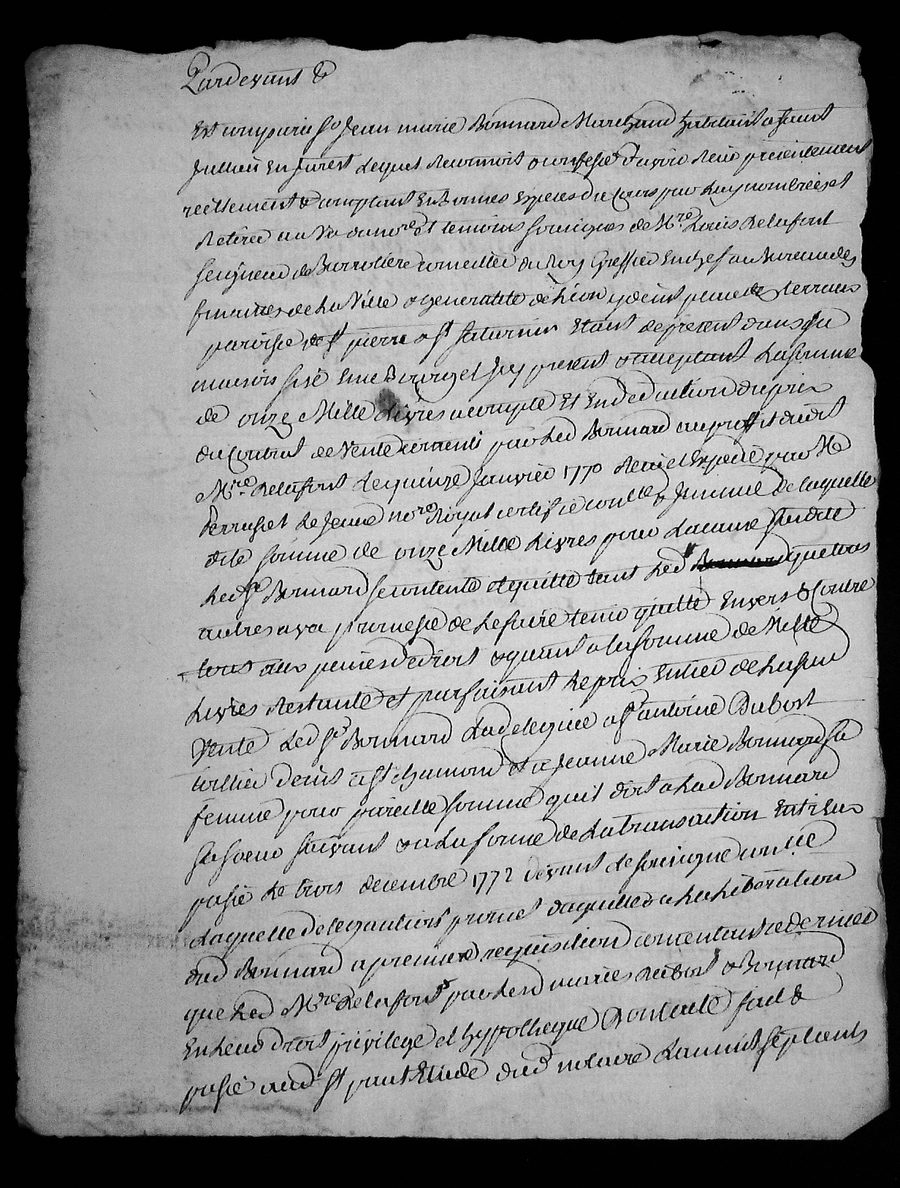 Pardevant &
Est comparu Sr Jean marie Bonnard Marchand habitant a saint
Jullien En Jarest Lequel reconnoit & confesse d'avoir Receu presentement
reellement & comptant En bonnes Especes du Cours par Luy nombrées et
Retirée au Vû du nore et temoins soussignes de Mre Louis Delafont
seigneur de conseiller du Roy Greffier En chef au Bureau des
finances de La Ville & generalité de Lion y demt place des terreaux
paroisse de st pierre & st saturnin Etant de present dans sa
maison sise En ce Bourg et Icy present & acceptant La somme
de onze Mille Livres acompte Et En deduction du prix
du Contrat de Vente par Led Bonnard au proffit dudit
Mre Delafont Le quinze Janvier 1770 Receu et Expedié par Me
Perrusset Le Jeune nore Royal certifié controllé & de laquelle
dite somme de onze Mille Livres pour La cause susdite
Led Sr Bonnard se contente & quitte tant Led sr que tous
autres avec promesse de Le faire tenir quitte Envers & Contre
tous aux peines de droit & quant a la somme de Mille
Livres Restante et parfaisant Le prix Entier de La sud
Vente Led Sr Bonnard La deleguée a Sr antoine Dubost
demt a St chamond et a Jeanne Marie Bonnard sa
femme pour pareille somme qu'il doit a Lad Bonnard
sa soeur suivant & a La forme de La transaction Entr'eux
passé Le trois decembre 1772 devant Le soussigné
Laquelle delegation promet daquitter a La Liberation
dud Bonnard a premiere requisition consentant ce dernier
que Led Mre Delafont par Les d mariés Dubost & Bonnard
En Leur droit privilege et hypotheque Dont acte fait &
passé aud St paul Etude dud notaire L'an mil sept cents